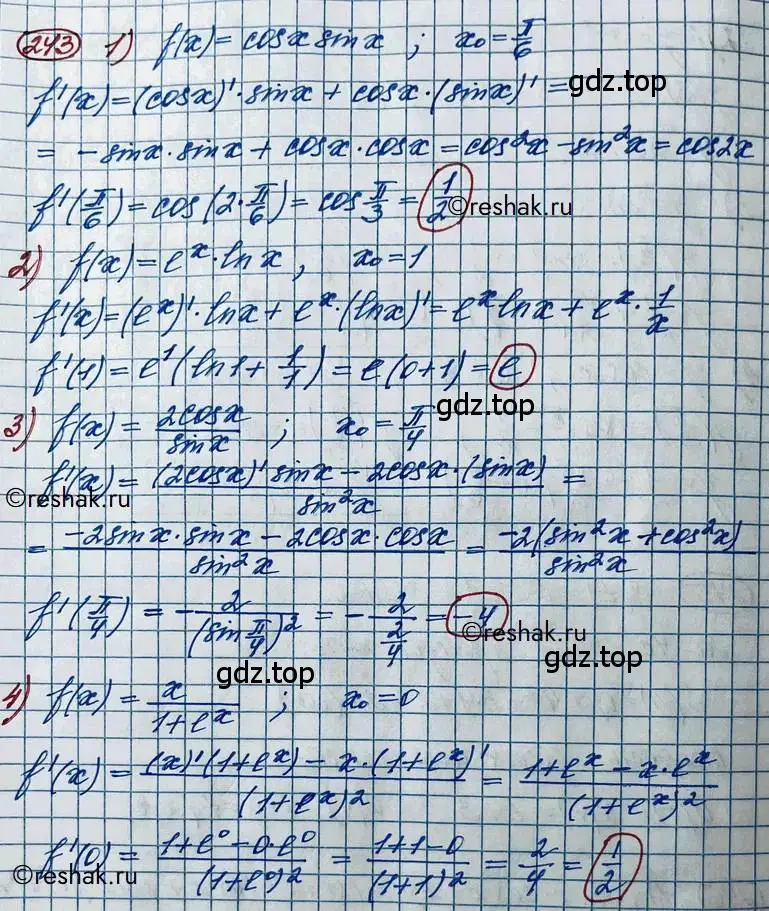 243 1) f(x) = cosx sinx ; x₀ = π/6
gdz.top
f'(x) = (cosx)'·sinx + cosx·(sinx)' =
= -sinx·sinx + cosx·cosx = cos²x - sin²x = cos2x
f'(π/6) = cos(2·π/6) = cos π/3 = 1/2
©reshak.ru
2) f(x) = eˣ·lnx, x₀ = 1
f'(x) = (eˣ)'·lnx + eˣ·(lnx)' = eˣlnx + eˣ·1/x
f'(1) = e¹(ln1 + 1/1) = e(0+1) = e
gdz.top
3) f(x) = 2cosx/sinx ; x₀ = π/4
f'(x) = ((2cosx)' sinx - 2cosx·(sinx))/sin²x =
©reshak.ru
= (-2sinx·sinx - 2cosx·cosx)/sin²x = -2(sin²x + cos²x)/sin²x
f'(π/4) = -2/(sin π/4)² = -2/(2/4) = -4
©reshak.ru
gdz.top
gdz.top
4) f(x) = x/(1+eˣ) ; x₀ = 0
f'(x) = ((x)'(1+eˣ) - x·(1+eˣ)')/(1+eˣ)² = (1+eˣ - x·eˣ)/(1+eˣ)²
f'(0) = (1+e⁰-0·e⁰)/(1+e⁰)² = (1+1-0)/(1+1)² = 2/4 = 1/2
©reshak.ru